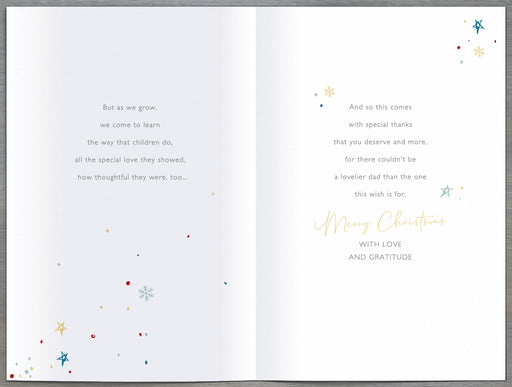 But as we grow,
we come to learn
the way that children do,
all the special love they showed,
how thoughtful they were, too...
And so this comes
with special thanks
that you deserve and more,
for there couldn't be
a lovelier dad than the one
this wish is for.
Merry Christmas
WITH LOVE
AND GRATITUDE